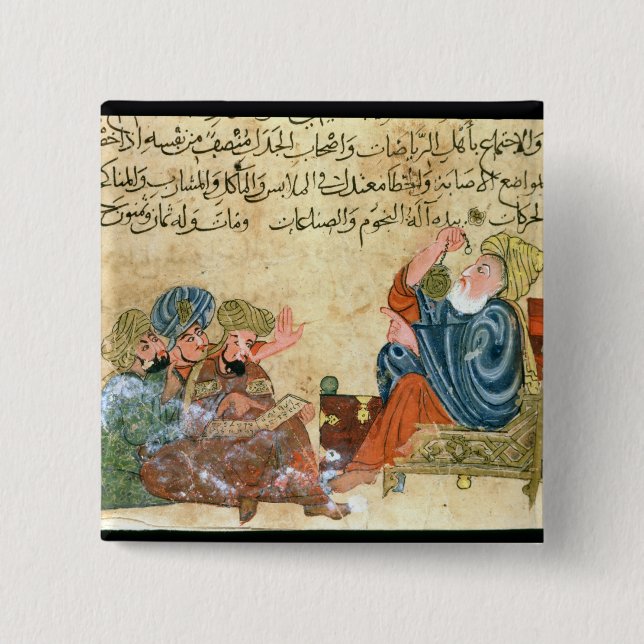 والاجتماع بأهل الرياضات واصحاب الجدل منصف من نفسه اذا
مواضع الاصابة والخطا معتدل في الملابس والمآكل والمشارب والمناكح
الحركات بيده آلة النجوم والصناعات ومات وله ثمان وثمنون